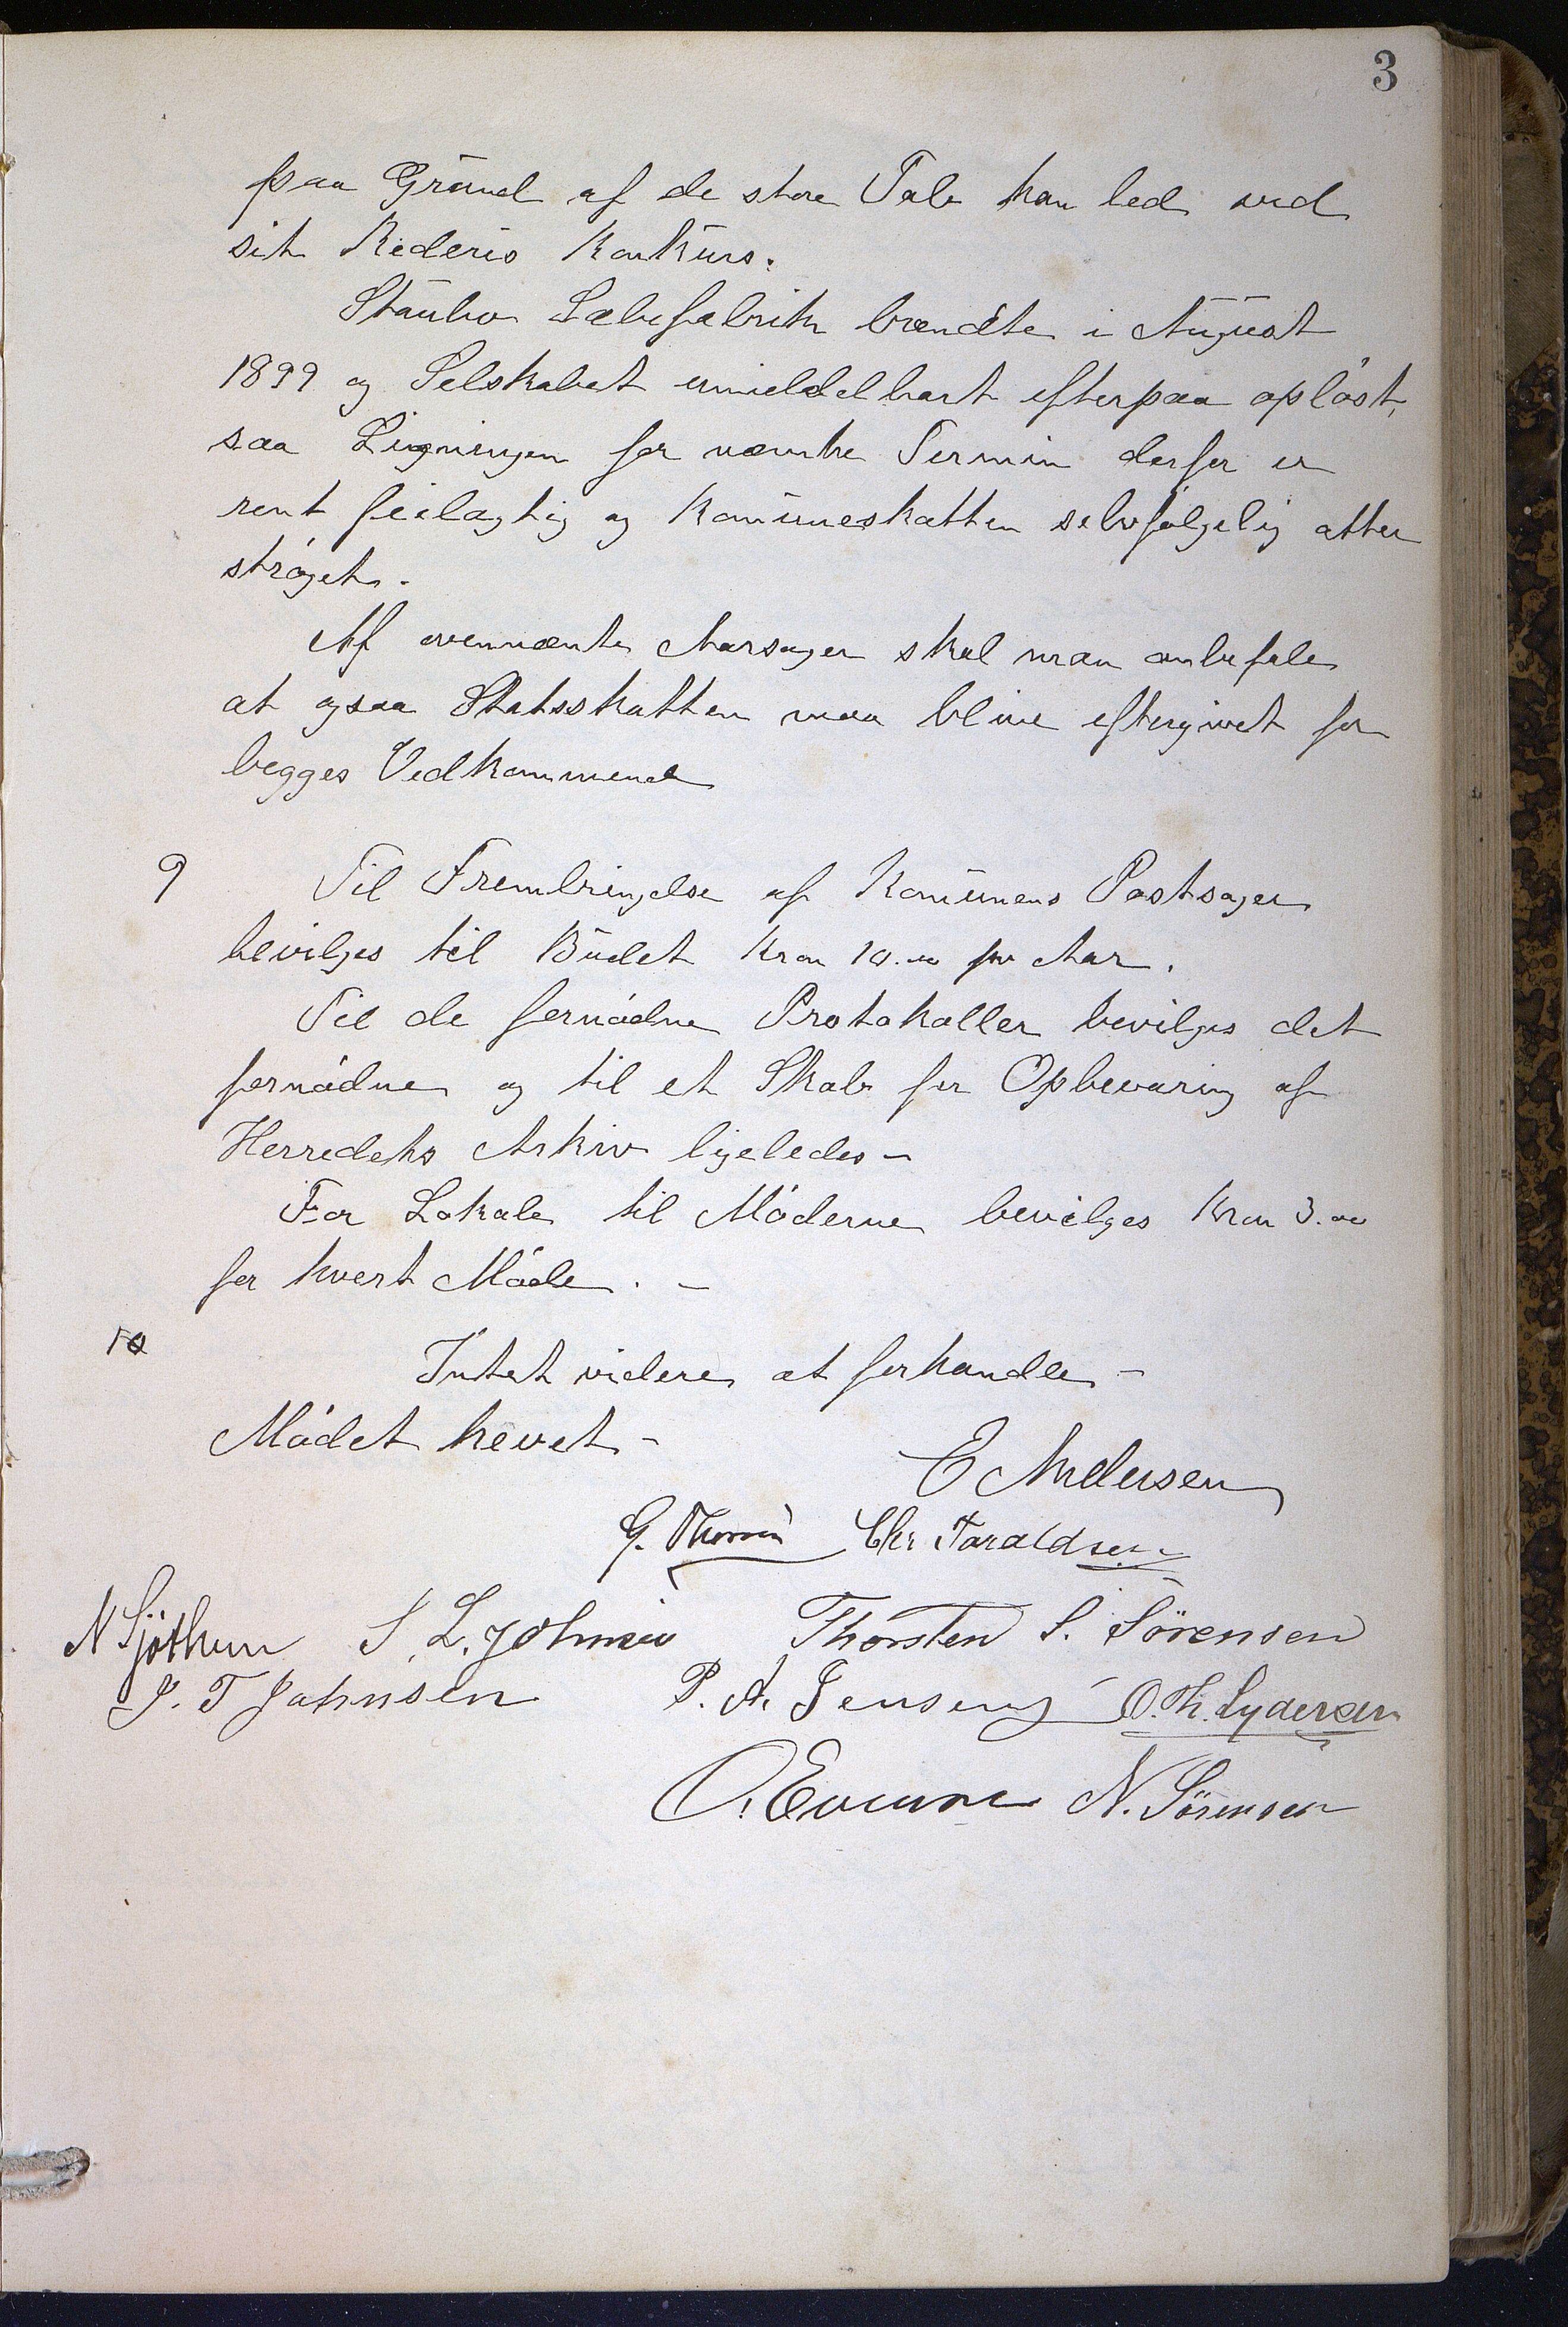 3
paa Grund af de store Tab han led ved
sit Rederis Konkurs.
Staubo Sæbefabrik brændte i August
1899 og Selskabet umiddelbart efterpaa opløst,
saa Ligningen for nævnte Termin derfor er
rent feilagtig og Komuneskatten selvfølgelig atter
strøget.
Af ovennævnte Aarsager skal man anbefale
at ogsaa Statsskatten maa blive eftergivet for
begges Vedkommende
9 Til Frembringelse af Komunens Postsager
bevilges til Budet Kron 10.00 pr Aar.
Til de fornødne Protokoller bevilges det
fornødne og til et Skab for Opbevaring af
Herredets Arkiv ligeledes -
For Lokale til Møderne bevilges Kron 3.00
for hvert Møde. -
10 Intet videre at forhandle -
Mødet hevet -
E Andersen
G. Chr Taraldsen
N S. L. Johnsen Thorsten S. Sörensen
J. T Johnsen P. A. Jensen O. Th. Lydersen
O. N. Sörensen